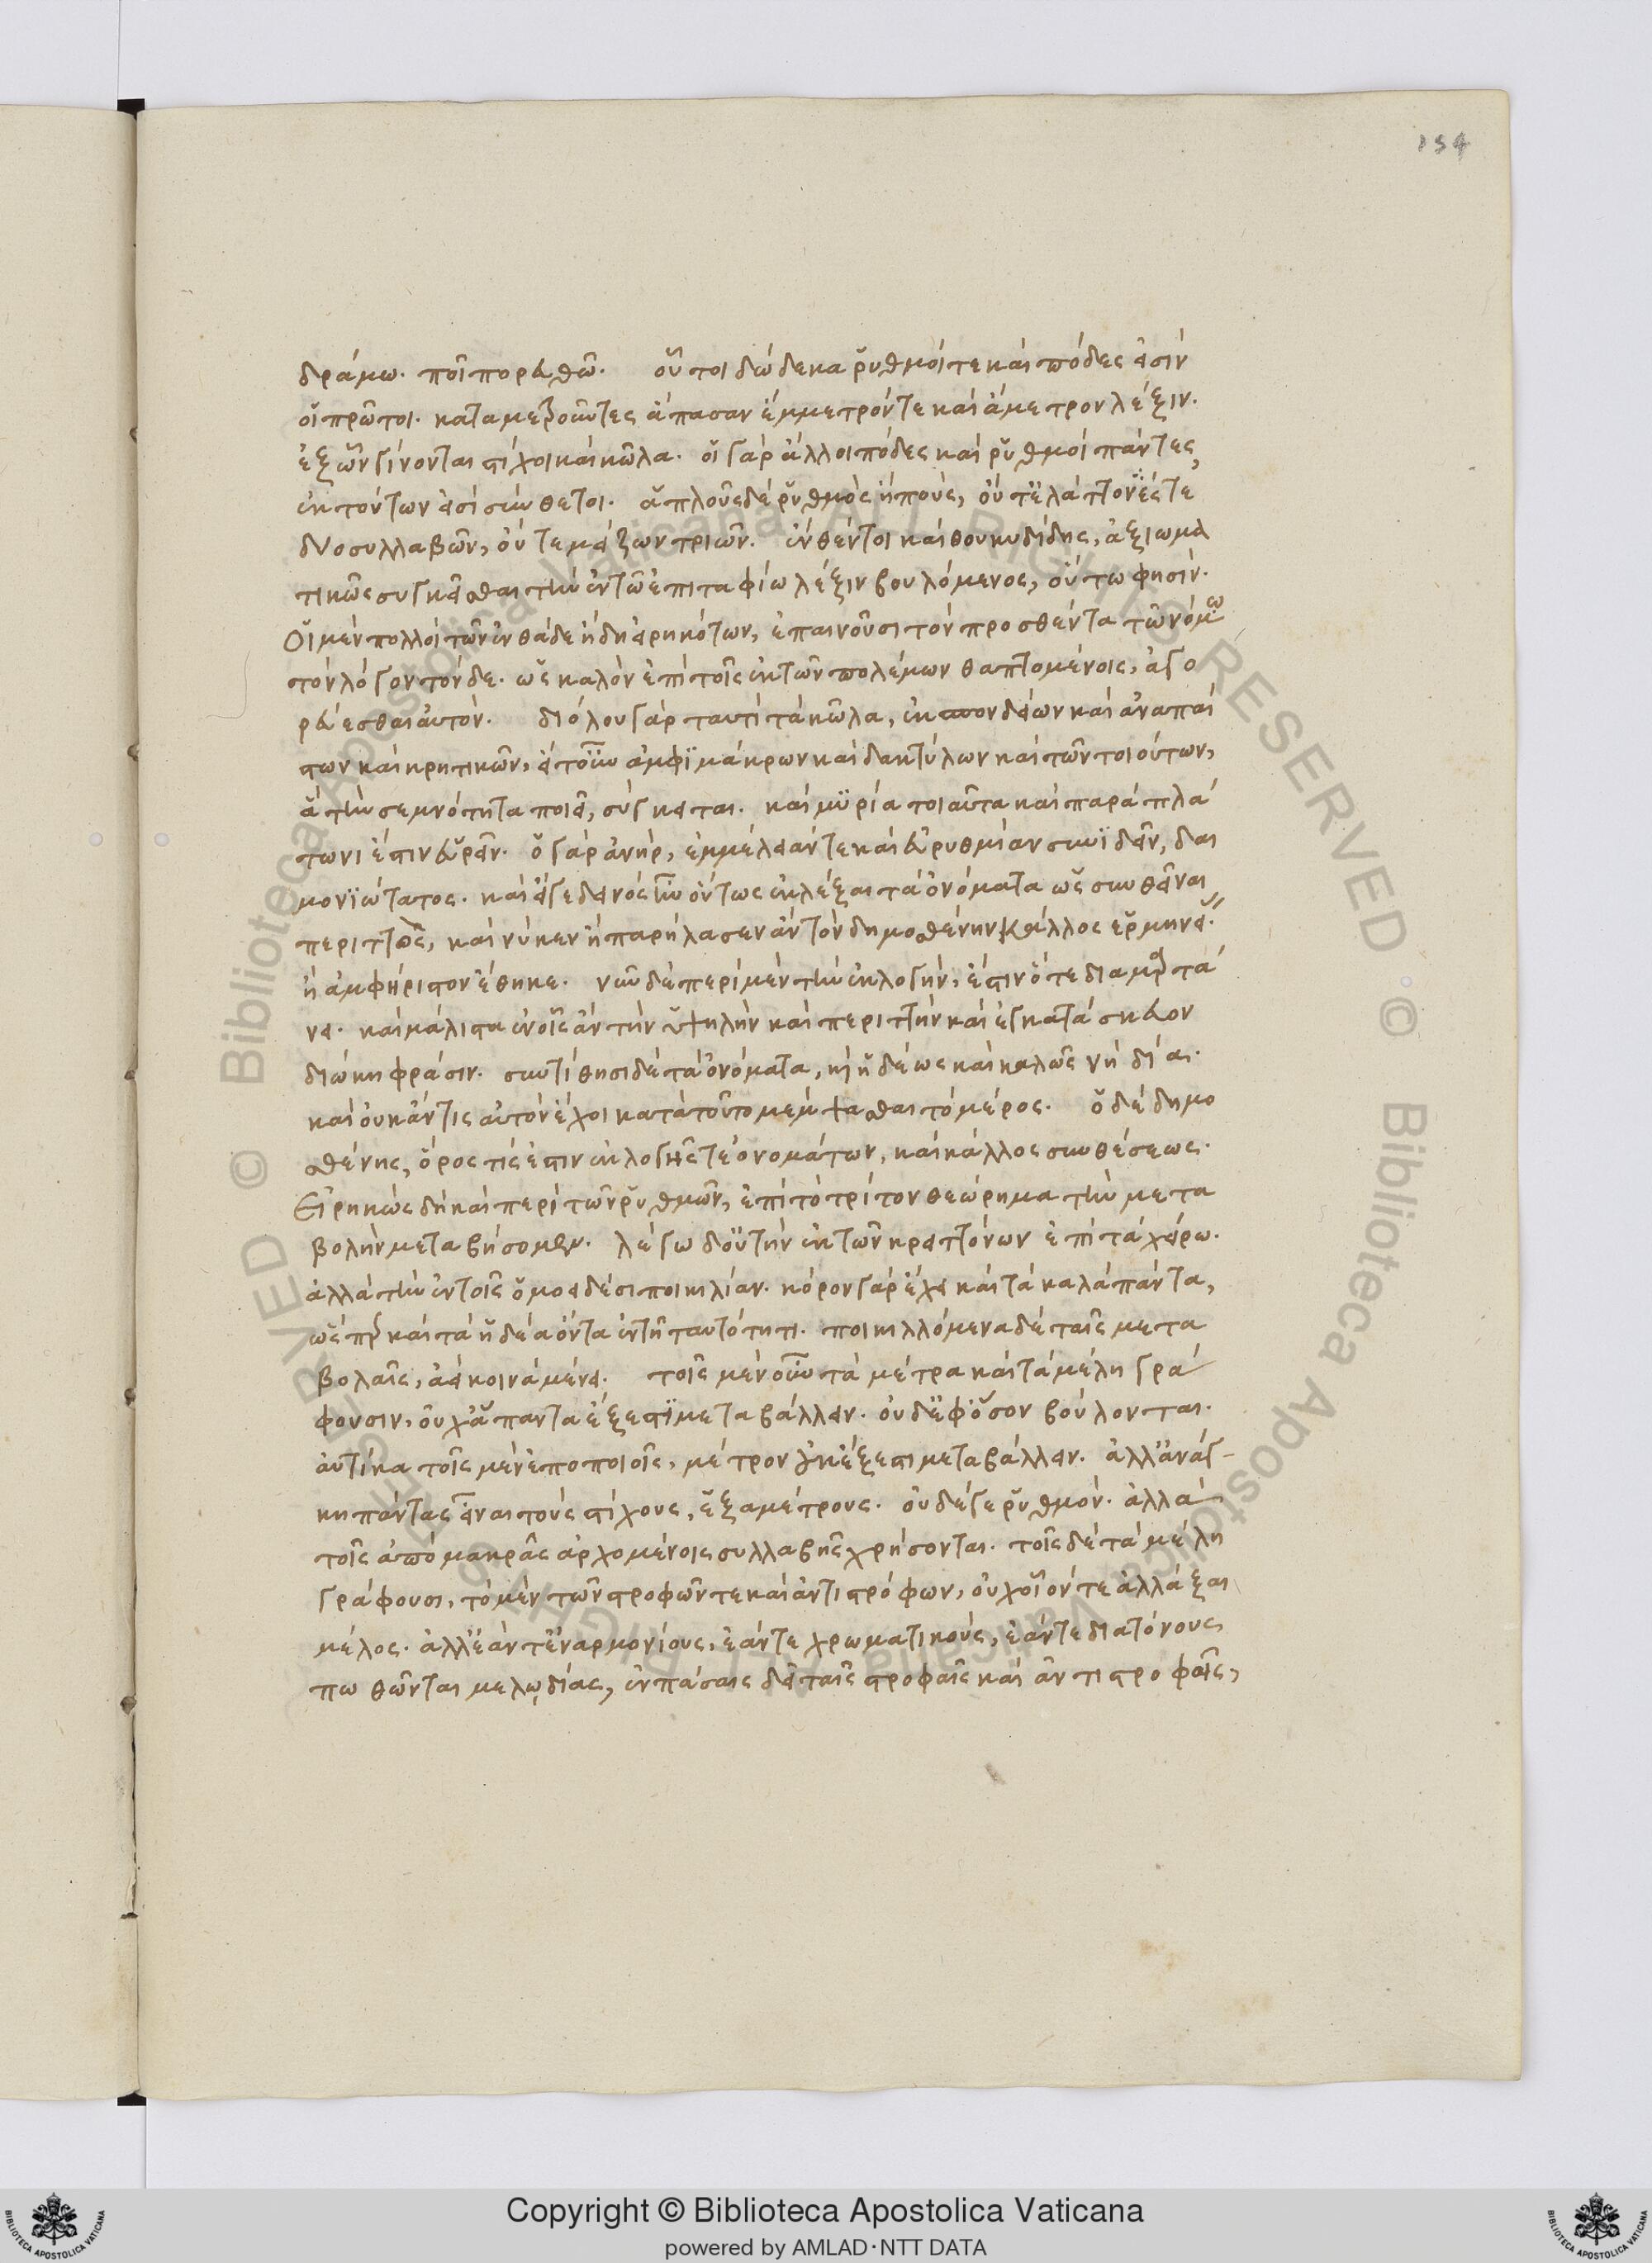 154
δράμω. ποῖ πορευθῶ. οὗτοι δώδεκα ῥυθμοί τε καὶ πόδες εἰσὶν
οἱ πρῶτοι. καταμετροῦντες ἅπασαν ἔμμετρόν τε καὶ ἄμετρον λέξιν.
ἐξ ὧν γίνονται στίχοι καὶ κῶλα. οἱ γὰρ ἄλλοι πόδες καὶ ῥυθμοὶ πάντες,
ἐκ τούτων εἰσὶ σύνθετοι. ἁπλοῦς δὲ ῥυθμὸς ἢ πούς, οὔτ' ἐλάττον' ἔσται
δυο συλλαβῶν, οὔτε μείζων τριῶν. ἔνθέν τοι καὶ θουκυδίδης, ἀξιωμα
τικῶς συγκεῖσθαι τὴν ἐν τῶ ἐπιταφίω λέξιν βουλόμενος, οὕτω φησίν.
Οἱ μὲν πολλοὶ τῶν ἐνθάδε ἤδη εἰρηκότων, ἐπαινοῦσι τὸν προσθέντα τῶ νόμω
τὸν λόγον τόνδε. ὡς καλὸν ἐπὶ τοῖς ἐκ τῶν πολέμων θαπτομένοις, ἀγο
ρεύεσθαι αὐτόν. διόλου γὰρ ταυτὶ τὰ κῶλα, ἐκ σπονδείων καὶ ἀναπαί
στων καὶ κρητικῶν, εἴτουν ἀμφιμάκρων καὶ δακτύλων καὶ τῶν τοιούτων,
ἃ τὴν σεμνότητα ποιεῖ, σύγκειται. καὶ μυρία τοιαῦτα καὶ παρὰ πλά
τωνι ἔστιν εὑρεῖν. ὁ γὰρ ἀνὴρ, ἐμμέλειάν τε καὶ εὐρυθμίαν συνιδεῖν, δαι
μονιώτατος. καὶ εἴγε δεινὸς ἦν ὄντως ἐκλέξαι τὰ ὀνόματα ὡς συνθεῖναι
περιττῶς, καί νύ κεν ἢ παρήλασεν ἂν τὸν δημοσθένην κάλλος ἑρμηνεί.
ἢ ἀμφήριστον ἔθηκε. νῦν δὲ περὶ μὲν τὴν ἐκλογὴν, ἔστιν ὅτε διαμαρτά
νει. καὶ μάλιστα ἐν οἷς ἂν τὴν ὑψηλὴν καὶ περιττὴν καὶ ἐγκατάσκευον
διώκη φράσιν. συντίθησι δὲ τὰ ὀνόματα, καὶ ἡδέως καὶ καλῶς νὴ δία.
καὶ οὐκ ἄν τις αὐτὸν ἔχοι κατὰ τοῦτο μέμψασθαι τὸ μέρος. ὁ δὲ δημο
σθένης, ὅρος τίς ἐστιν ἐκλογῆς τε ὀνομάτων, καὶ κάλλος συνθέσεως.
Εἰρηκὼς δὴ καὶ περὶ τῶν ῥυθμῶν, ἐπὶ τὸ τρίτον θεώρημα τὴν μετα
βολὴν μεταβήσομαι. λέγω δ' οὐ τὴν ἐκ τῶν κρειττόνων ἐπὶ τὰ χείρω.
ἀλλὰ τὴν ἐν τοῖς ὁμοειδέσι ποικιλίαν. κόρον γὰρ ἔχει καὶ τὰ καλὰ πάντα,
ὥσπερ καὶ τὰ ἡδέα ὄντα ἐν τῆ ταυτότητι. ποικιλλόμενα δὲ ταῖς μετα
βολαῖς, ἀεὶ κοινὰ μένει. τοῖς μὲν οὖν τὰ μέτρα καὶ τὰ μέλη γρά
φουσιν, οὐχ ἅπαντα ἔξεστι μεταβάλλειν. οὐδ' ἐφ' ὅσον βούλονται.
αὐτίκα τοῖς μὲν ἐποποιοῖς, μέτρον οὐκ ἔξεστι μεταβάλλειν. ἀλλ' ἀνάγ-
κη πάντας εἶναι τοὺς στίχους, ἑξαμέτρους. οὐδέ γε ῥυθμόν. ἀλλὰ
τοῖς ἀπὸ μακρᾶς ἀρχομένοις συλλαβῆς χρήσονται. τοῖς δὲ τὰ μέλη
γράφουσι, τὸ μὲν τῶν στροφῶν τε καὶ ἀντιστρόφων, οὐχ οἷόν τε ἀλλάξαι
μέλος. ἀλλ' ἐάν τ' ἐναρμονίους, ἐάν τε χρωματικοὺς, ἐάν τε διατόνους
πωθῶνται μελῳδίας, ἐν πάσαις δεῖ ταῖς στροφαῖς καὶ ἀντιστροφαῖς,
© Biblioteca Apostolica Vaticana ALL RIGHTS RESERVED © Biblioteca Apostolica Vaticana ALL RIGHTS RESERVED
Copyright © Biblioteca Apostolica Vaticana
powered by AMLAD·NTT DATA
BIBLIOTECA APOSTOLICA VATICANA
BIBLIOTECA APOSTOLICA VATICANA